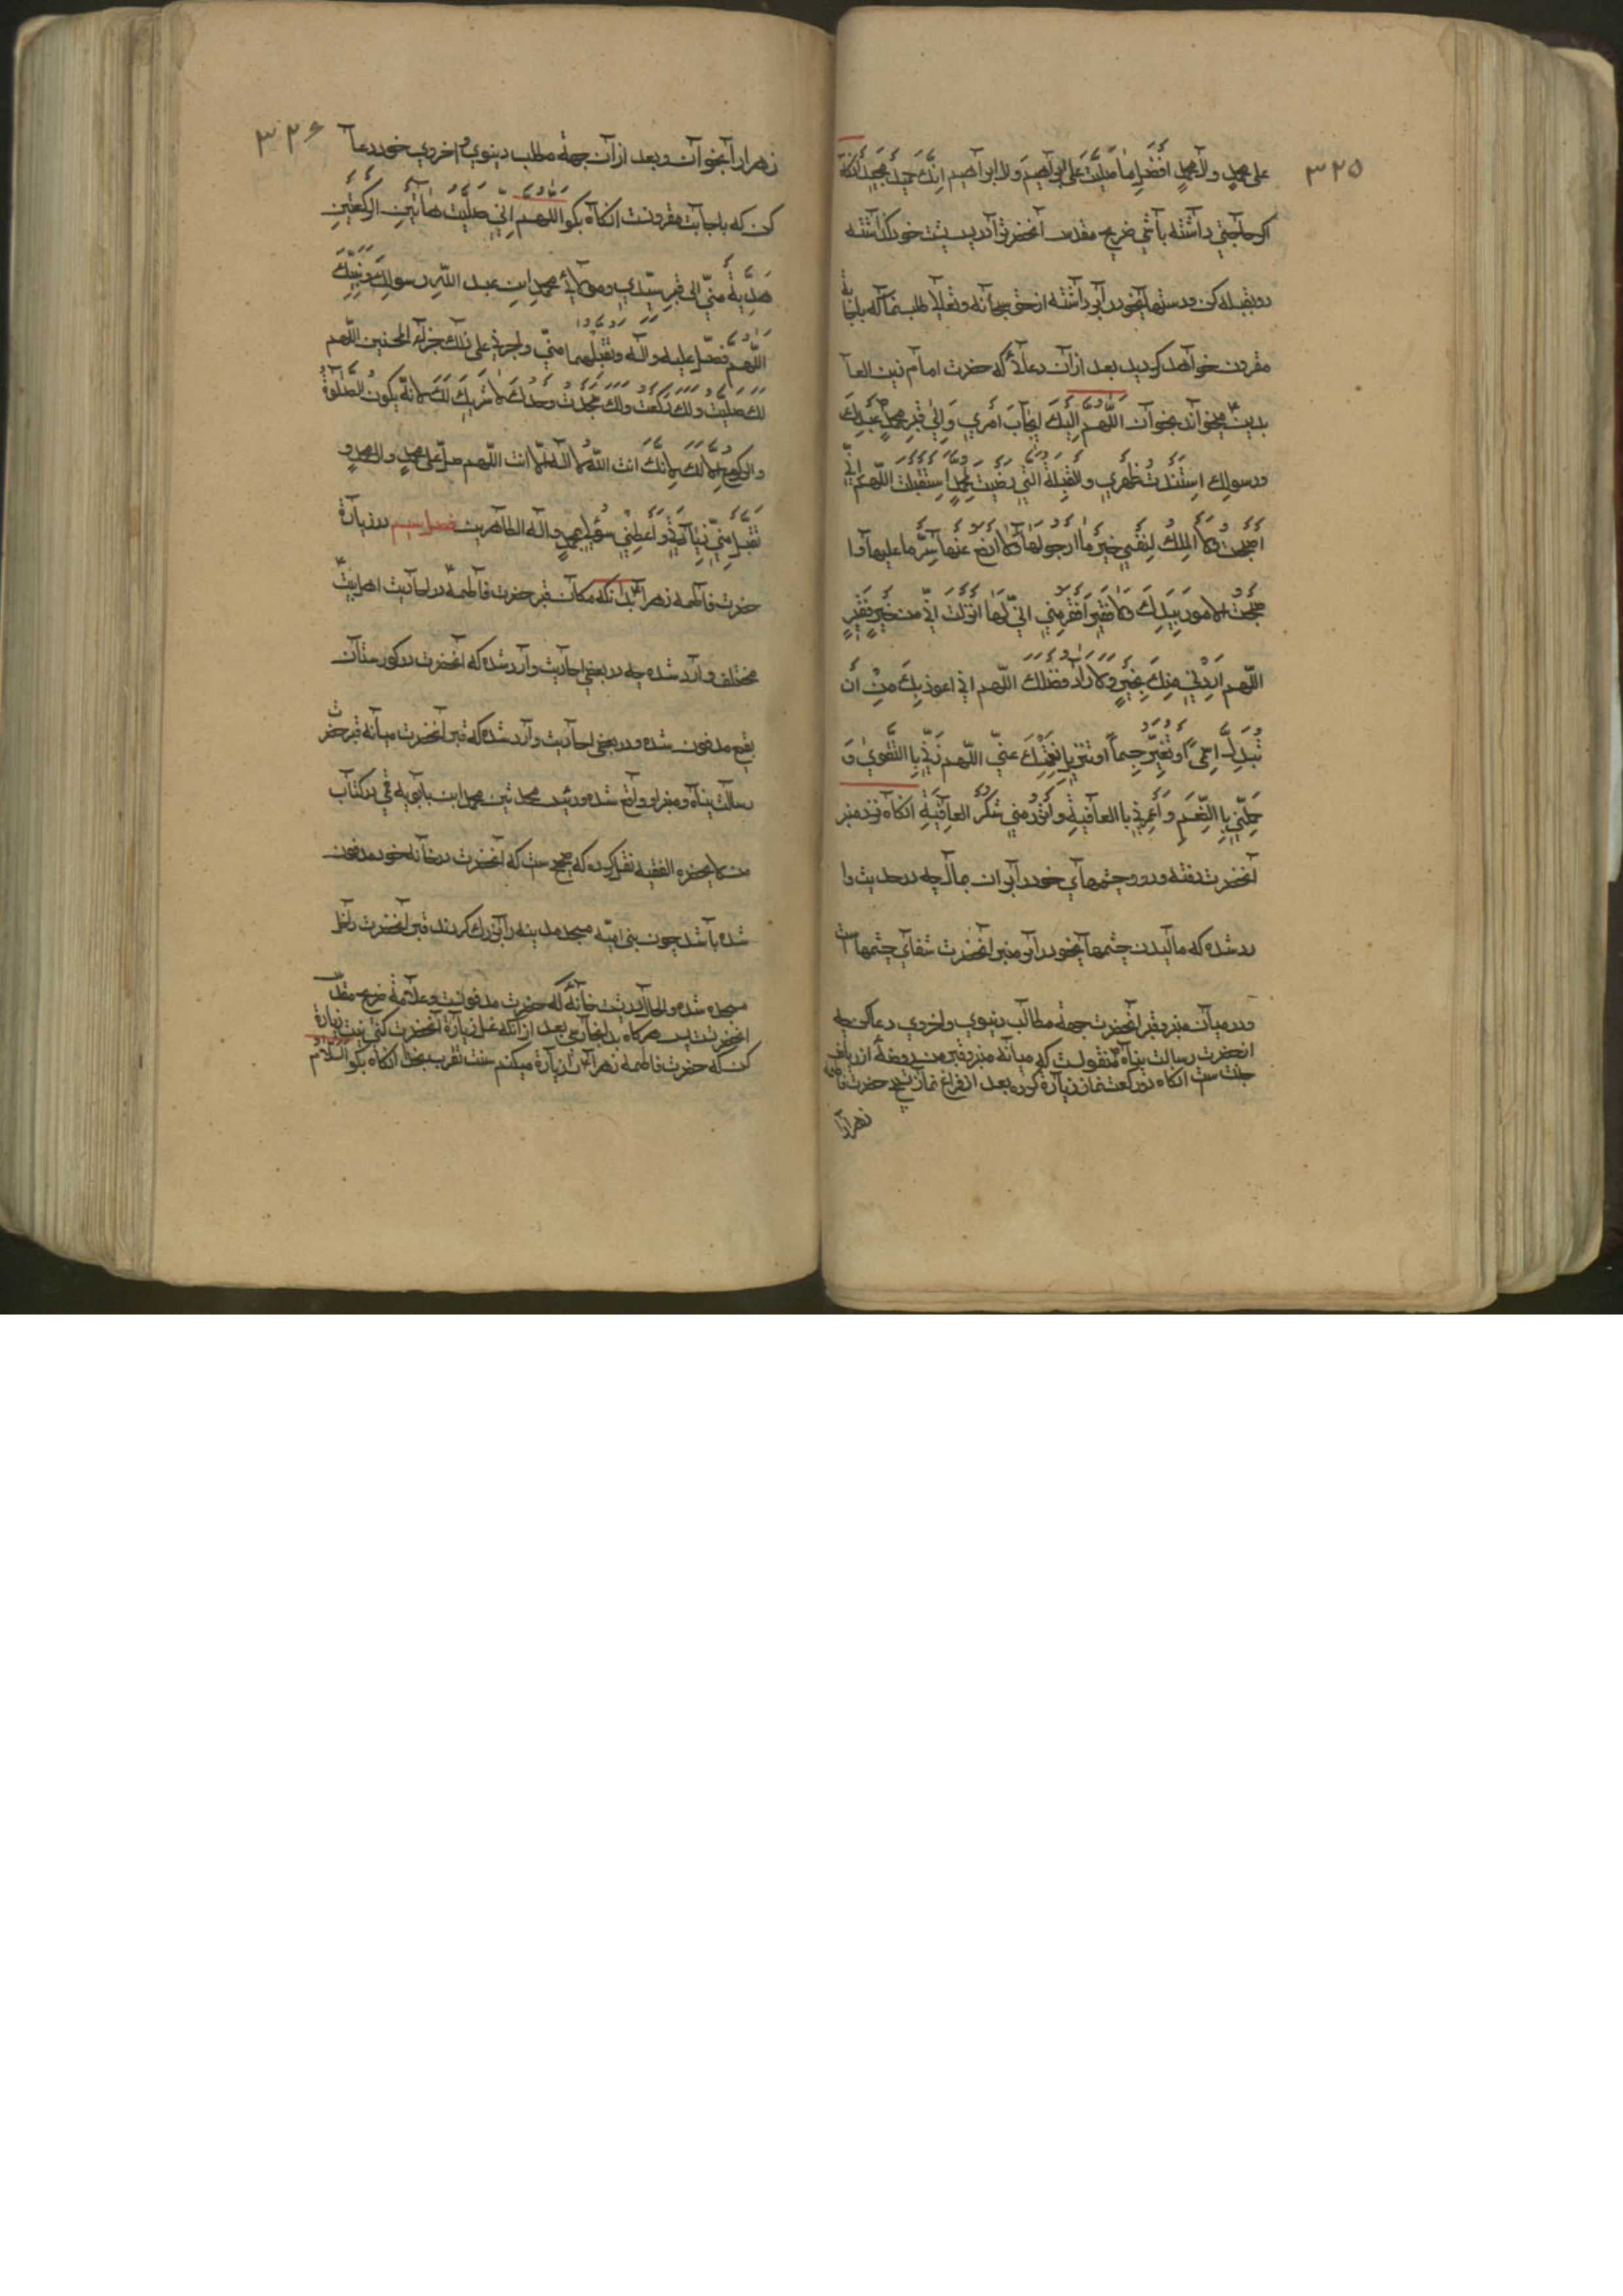 ۳۲۵
علی محمد وال محمد افضل ما صلیت علی ابراهیم وال ابراهیم انک حمید مجید انکاه
اکر حاجتی داشته باشی ضریح مقدس آنحضرت را در پشت خود کذاشته
رو بقبله کن ودستهای خود را برداشته از حق سبحانه وتعالی طلب نما که باجابة
مقرون خواهد کردید بعد ازان دعائی که حضرت امام زین العا
بدین میخوانده بخوان اَللّٰهُمَّ اِلَیْكَ اَمری وَاِلیٰ قبر محمد عبدك
ورسولك اسندت ظهری والقبلة التی رضیت لمحمد استقبلت اللّهم انّی
اصبحت لا املك لنفسی خیر ما ارجو لها ولا ادفع عنها شر ما علیها وا
صبحت الامور بیدك ولا فقیر افقر منی انی لما انزلت الیّ من خیر فقیر
اللّهم ارددنی منك بخیر ولا رادّ لفضلك اللّهم انی اعوذ بك من ان
تبدل اسمی او تغیر جسمی او تزیل نعمتك عنّی اللّهم زینی بالتقوی و
جملنی باالنعم واعمرنی باالعافیة وارزقنی شکر العافیة انکاه نزد منبر
آنحضرت رفته ورو وچشمهای خود را بران بمال چه در حدیث وا
رد شده که مالیدن چشمهای خود را بر منبر آنحضرت شفای چشمها است
ودر میان منبر وقبر آنحضرت جهة مطالب دنیوی واخروی دعا کن چه
از حضرت رسالت پناه منقولست که میانه منبر وقبر من روضهٔ از ریاض
جنت ست انکاه دو رکعت نماز زیارة کرده بعد از فراغ نماز تسبیح حضرت فاطمه
زهرا را
۳۲۶
زهرا را بخوان وبعد ازان جهة مطلب دینوی واخروی خود دعا
کن که باجابت مقرونست انکاه بکو اللهم انّی صلیت هاتین الرکعتین
هدیة منّی الی قبر سیّدی ومولای محمد ابن عبد اللّه رسولك ونبیّك
اللّهم فصلّ علیه وآله وتقبلهما منّی واجرنی علی ذلك جزاء المحسنین اللّهم
لك صلیت ولك رکعت ولك سجدت وحدك لا شریك لك لانّه لا یکون الصلوة
والرکوع الا لك لانّك انت اللّه لا اله الّا انت اللّهم صلّ علی محمد وال محمد و
تقبل منّی زیارتی واعطنی سؤلی بمحمد وآله الطاهرین فصل سیم در زیارة
حضرت فاطمه زهرا بدانکه مکان قبر حضرت فاطمه در احادیث اهل بیت
مختلف وارد شده چه در بعضی احادیث وارد شده که آنحضرت در کورستان
بقیع مدفون شده ودر بعضی احادیث وارد شده که قبر آنحضرت میانه قبر حضرت
رسالت پناه ومنبر او واقع شده ورئیس محدثین محمد ابن بابویه قمی در کتاب
من لا یحضره الفقیه نقل کرده که صحیح ست که آنحضرت در خانه خود مدفون
شده باشد چون بنی امیّه مسجد مدینه را بزرك کردند قبر آنحضرت داخل
مسجد شده والحال در پشت خانهٔ که حضرت مدفونست وعلامة ضریح مقدس
آنحضرتست پس هرکاه بدانجا رسی بعد از آنکه غسل زیارة آنحضرت کنی نیت زیارة
کن که حضرت فاطمه زهرا را زیارة میکنم سنت تقرب بخدا انکاه بکو السلام